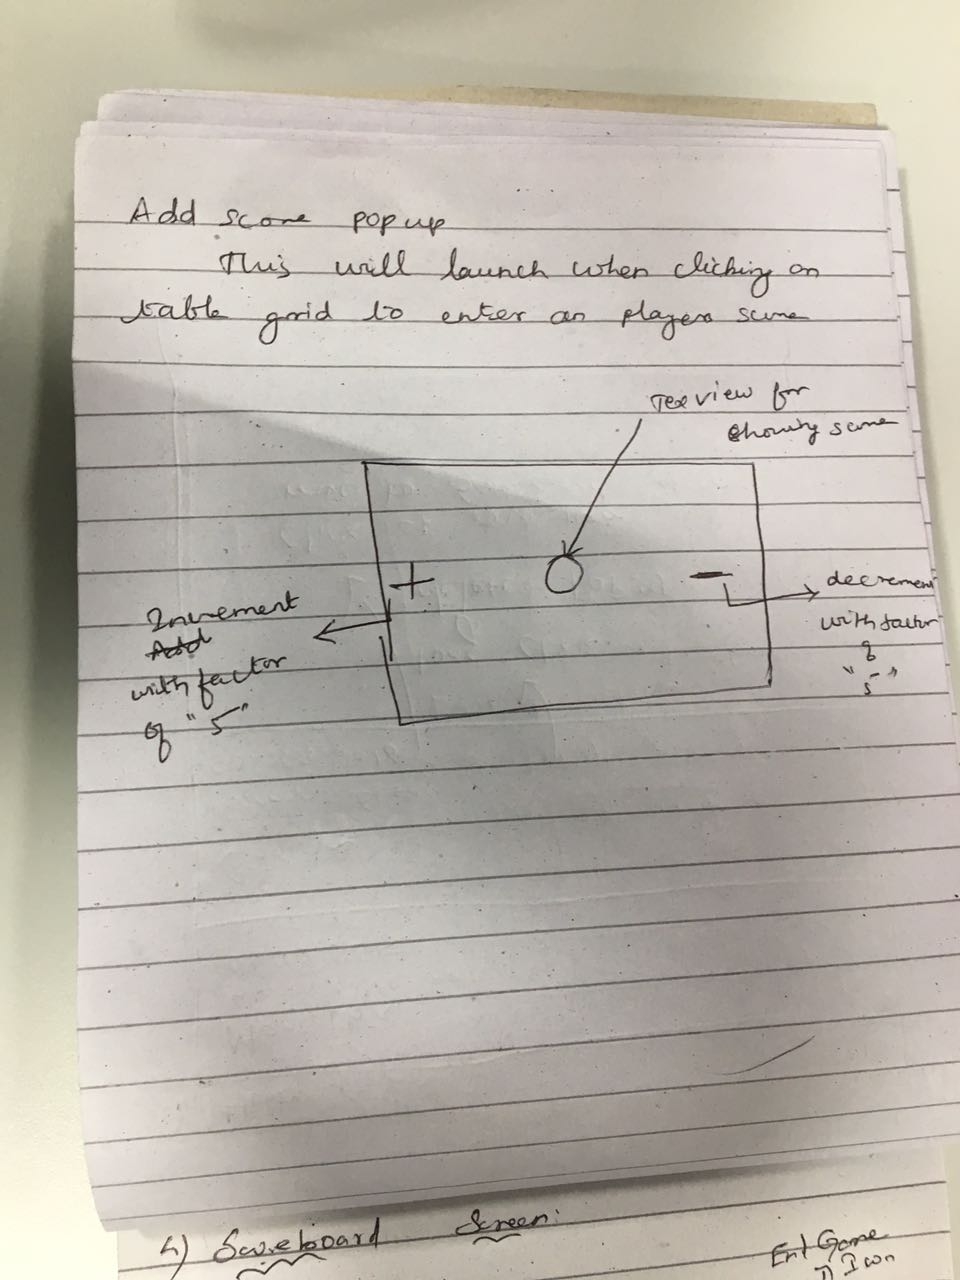 Add score popup
This will launch when clicking on
table grid to enter an players score
Texview for
showing score
+
O
-
Increment
Add
with factor
of "5"
decrement
with factor
of
"5"
4) Scoreboard Screen:
End Game
Icon